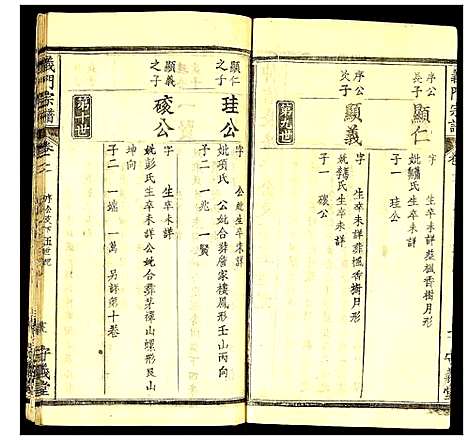 義門宗譜
序公長子
顯仁
字 生卒未詳葬楓香樹月形
子一 珪公
第九世
序公次子
顯義
字 生卒未詳葬楓香樹月形
氏生卒未詳
子一 磙公
守義堂
顯仁之子
珪公
字 公妣生卒未詳
妣項氏 公妣合葬詹家樓鳳形壬山丙向
子二 一兆 一賢
第十世
顯義之子
磙公
字 生卒未詳
妣彭氏生卒未詳公妣合葬茅禪山螺形艮山坤向
子二 一端 一萬 另詳第十卷
義門宗譜
守義堂